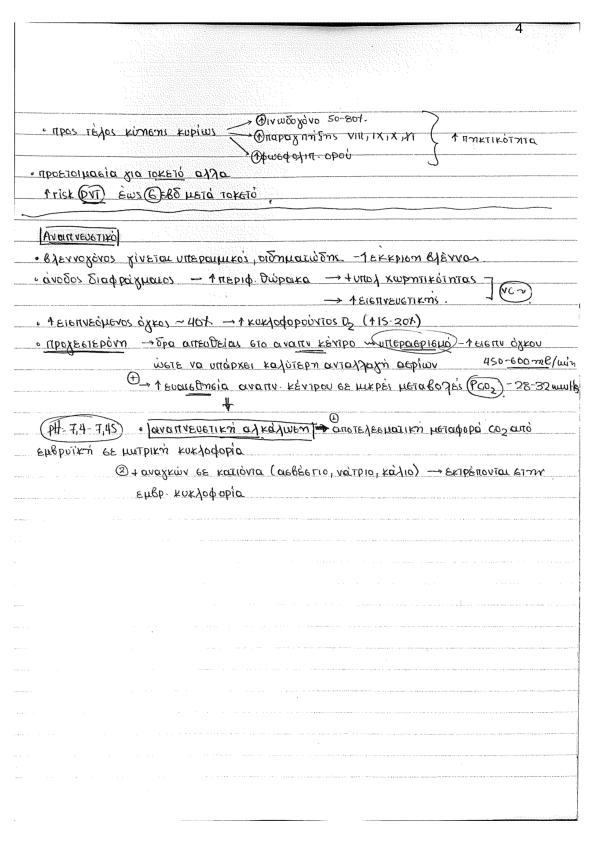 4
↑ ινωδογόνο 50-80%
• προς τέλος κύησης κυρίως → ↑ παραγ πήξης VIII, IX, X, XI } ↑ πηκτικότητα
↑ φωσφολιπ. ορού
• προετοιμασία για τοκετό αλλα
↑ risk DVT έως 6 εβδ μετά τοκετό
Αναπνευστικό
• βλεννογόνος γίνεται υπεραιμικός, οιδηματώδης - ↑ έκκριση βλέννας
• άνοδος διαφράγματος → ↑ περιφ. θώρακα → ↓ υπολ χωρητικότητας
→ ↑ εισπνευστικής. VC ~
• ↑ εισπνεόμενος όγκος ~ 40% → ↑ κυκλοφορούντος O₂ (↑ 15-20%)
• προγεστερόνη → δρα απευθείας στο αναπν κέντρο → υπεραερισμό - ↑ εισπν όγκου
ώστε να υπάρχει καλύτερη ανταλλαγή αερίων 450-600 ml/min
+ → ↑ ευαισθησία αναπν. κέντρου σε μικρές μεταβολές PCO₂ - 28-32 mmHg
↓
pH - 7,4 - 7,45 • αναπνευστική αλκάλωση → ① αποτελεσματική μεταφορά CO₂ από
εμβρυϊκή σε μητρική κυκλοφορία
② ↓ αναγκών σε κατιόντα (ασβέστιο, νάτριο, κάλιο) → εκτρέπονται στην
εμβρ. κυκλοφορία